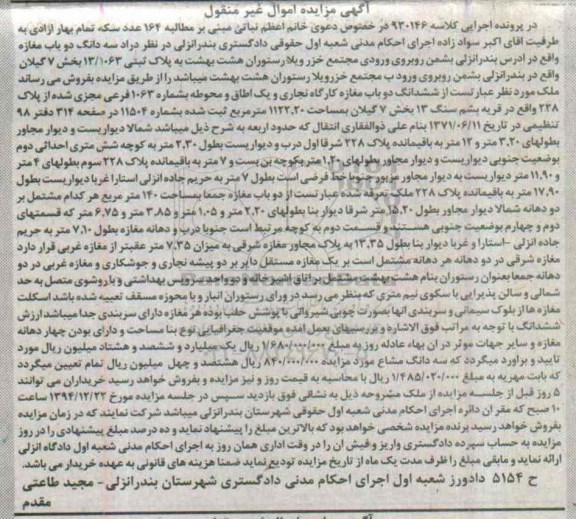 آگهی مزایده اموال غیر منقول
در پرونده اجرایی کلاسه ۹۳۰۱۴۶ در خصوص دعوی خانم اعظم نباتی مبنی بر مطالبه ۱۶۴ عدد سکه تمام بهار ازادی به
طرفیت اقای اکبر سواد زاده اجرای احکام مدنی شعبه اول حقوقی دادگستری بندرانزلی در نظر دراد سه دانگ دو باب مغازه
واقع در ادرس بندرانزلی بشمن روبروی ورودی مجتمع خزر ویلا رستوران هشت بهشت به پلاک ثبتی ۱۰۶۳/۱۳ بخش ۷ گیلان
واقع در بندرانزلی بشمن روبروی ورود ب مجتمع خزرویلا رستوران هشت بهشت میباشد را از طریق مزایده بفروش می رساند
ملک مورد نظر عبارتست از ششدانگ دو باب مغازه کارگاه نجاری و یک اطاق و محوطه بشماره ۱۰۶۳ فرعی مجزی شده از پلاک
۲۲۸ واقع در قریه بشم سنگ ۱۳ بخش ۷ گیلان بمساحت ۱۱۲۲.۲۰ مترمربع ثبت شده بشماره ۱۱۵۰۴ در صفحه ۳۱۴ دفتر ۹۸
تنظیمی در تاریخ ۱۳۷۱/۰۶/۱۱ بنام علی ذوالفقاری انتقال که حدود اربعه به شرح ذیل میباشد شمالا دیواریست و دیوار مجاور
بطولهای ۳.۲۰ متر و ۱۲ متر به باقیمانده پلاک ۲۲۸ شرقا اول درب و دیواریست بطول ۲.۳۰ متر به کوچه شش متری احداثی دوم
بوضعیت جنوبی دیواریست و دیوار مجاور بطولهای ۱.۲۰ متر بکوچه بن بست و ۷ متر به باقیمانده پلاک ۲۲۸ سوم بطولهای ۴ متر
و ۱۱.۹۰ متر دیواریست به دیوار مجاور مزبور جنوبا خط فرضی است بطول ۷ متر به حریم جاده انزلی استارا غربا دیواریست بطول
۱۷.۹۰ متر به باقیمانده پلاک ۲۲۸ ملک تعرفه شده عبارتست از دو باب مغازه جمعا بمساحت ۱۴۰ متر مربع هر کدام مشتمل بر
دو دهانه شمالا دیوار مجاور بطول ۱۵.۲۰ متر شرقا دیوار بنا بطولهای ۲.۲۰ متر و ۱.۰۵ متر و ۳.۸۵ متر و ۶.۷۵ متر که قسمتهای
دوم و چهارم بوضعیت جنوبی هستند و قسمت دوم به کوچه مرتبط است جنوبا درب و دهانه مغازه بطول ۷.۱۰ متر به حریم
جاده انزلی -استارا و غربا دیوار بنا بطول ۱۳.۳۵ به پلاک مجاور مغازه شرقی به میزان ۷.۳۵ متر عقبتر از مغازه غربی قرار دارد
مغازه شرقی در دو دهانه هر دهانه مشتمل است بر یک مغازه مستقل دایر بر دو پیشه نجاری و جوشکاری و مغازه غربی در دو
دهانه جمعا بعنوان رستوران بنام هشت بهشت مشتمل بر اتاق اشپزخانه و دو واحد سرویس بهداشتی و با روشوی متصل به حد
شمالی و سالن پذیرایی با سکوی نیم متری که بنظر می رسد در ورای رستوران انبار و یا مخروبه مسقف تعبیه شده باشد اسکلت
مغازه ها از بلوک سیمانی و سربندی انها بصورت چوبی شیروانی با پوشش حلب بوده هر مغازه دارای سربندی جدا میباشد ارزش
ششدانگ با توجه به مراتب فوق الاشاره و بررسیهای بعمل امده موقعیت جغرافیایی نوع بنا مساحت و دارای بودن چهار دهانه
مغازه و سایر جهات موثر در ان بهاء عادله روز به مبلغ ۱/۶۸۰/۰۰۰/۰۰۰ ریال یک میلیارد و ششصد و هشتاد میلیون ریال مورد
تایید و برآورد میگردد که سه دانگ مشاع مورد مزایده ۸۴۰/۰۰۰/۰۰۰ ریال هشتصد و چهل میلیون ریال تمام تعیین میگردد
که بابت مهریه به مبلغ ۱/۴۸۵/۰۲۰/۰۰۰ ریال با محاسبه به قیمت روز و نیز مزایده و بفروش خواهد رسید خریداران می توانند
۵ روز قبل از جلسه مزایده از ملک مشروحه ذیل به نشانی فوق بازدید سپس در جلسه مزایده مورخ ۱۳۹۴/۱۲/۲۲ ساعت
۱۰ صبح که مقر ان دائره اجرای احکام مدنی شعبه اول حقوقی شهرستان بندرانزلی میباشد شرکت نمایند که در زمان مزایده
بفروش خواهد رسید برنده مزایده شخصی خواهد بود که بالاترین مبلغ را پیشنهاد نماید و ده درصد مبلغ پیشنهادی را در روز
مزایده به حساب سپرده دادگستری واریز و فیش ان را در وقت اداری همان روز به اجرای احکام مدنی شعبه اول دادگاه انزلی
ارائه نماید و مابقی مبلغ را ظرف مدت یک ماه از تاریخ مزایده تودیع نماید ضمنا هزینه های قانونی به عهده خریدار می باشد.
ح ۵۱۵۴ دادورز شعبه اول اجرای احکام مدنی دادگستری شهرستان بندرانزلی - مجید طاعتی
مقدم